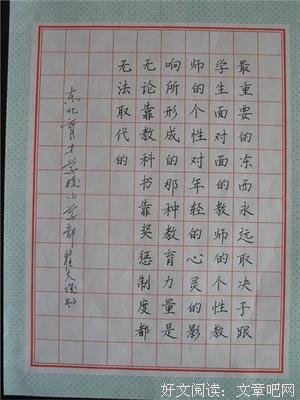 最重要的东西永远取决于跟
学生面对面的教师的个性教
师的个性对年轻的心灵的影
响所形成的那种教育力量是
无论靠教科书靠奖惩制度都
无法取代的
东北育才学校小学部
好文阅读：文章吧网